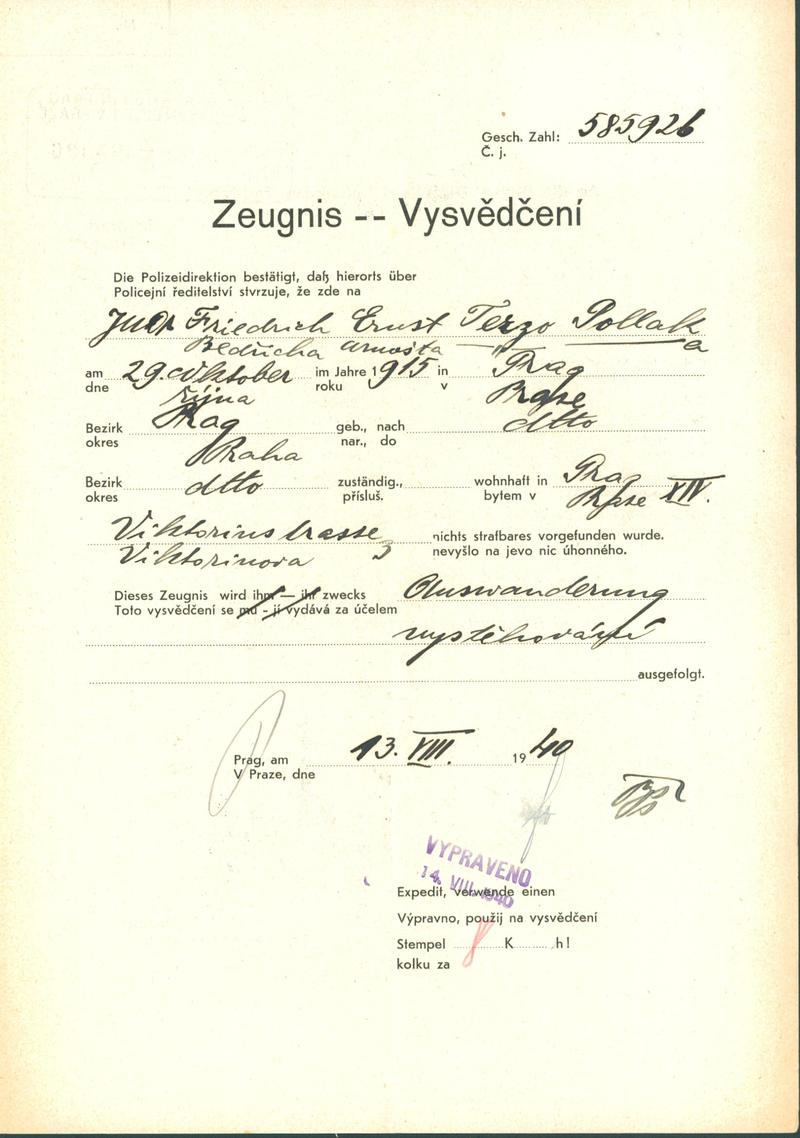 Gesch. Zahl: 585926
Č. j.
Zeugnis -- Vysvědčení
Die Polizeidirektion bestätigt, daß hierorts über
Policejní ředitelství stvrzuje, že zde na
JUDr Friedrich Ernst Terzo Pollak
Bedřicha Arnošta — " — a
am 29. Oktober im Jahre 1915 in Prag
dne října roku v Praze
Bezirk Prag geb., nach dtto
okres Praha nar., do
Bezirk dtto zuständig., wohnhaft in Prag
okres přísluš. bytem v Praze XIV.
Viktoriastrasse nichts strafbares vorgefunden wurde.
Viktorinova 3 nevyšlo na jevo nic úhonného.
Dieses Zeugnis wird ihm — ihr zwecks Auswanderung
Toto vysvědčení se mu - jí vydává za účelem
vystěhování
ausgefolgt.
Prag, am 13. VIII. 1940
V Praze, dne
VYPRAVENO
14. VIII. 1940
Expedit, verwende einen
Výpravno, použij na vysvědčení
Stempel 8 K h!
kolku za